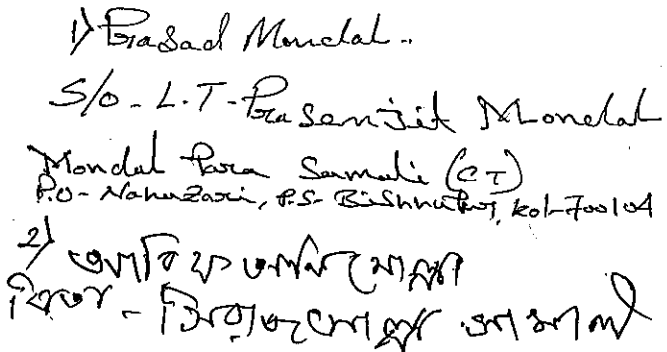 1) Prasad Mondal.
S/o - L.T - Prasenjit Mondal
Mondal Para Samali (CT)
P.O - Nahazari, P.S - Bishnupur, Kol-700104
2) আরিফ আলি মোল্লা
পিতা - সিরাজ মোল্লা